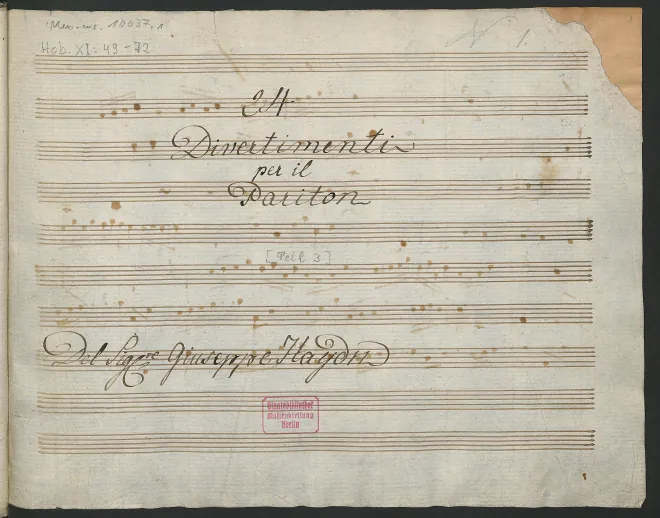 Mus. ms. 10037,1
1.
Hob. XI: 49-72
24
Divertimenti
per il
Pariton
[Teil 3]
Del Sigre Giuseppe Haydn
Staatsbibliothek
Musikabteilung
Berlin